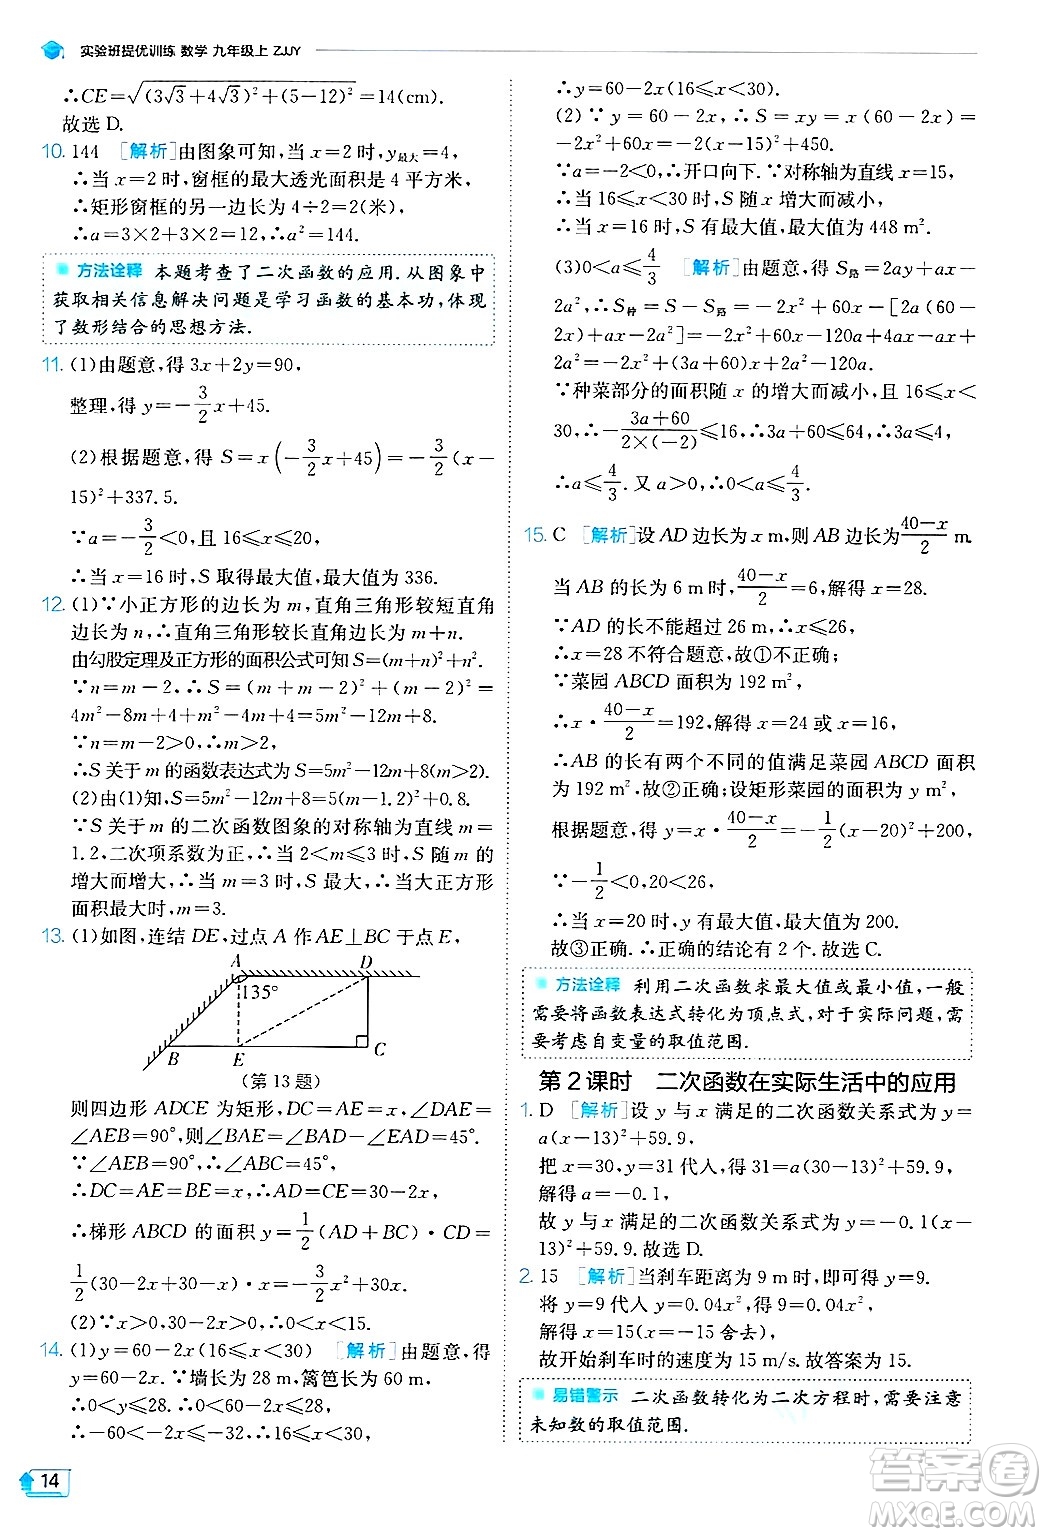 实验班提优训练 数学 九年级上 ZJJY
∴CE=√((3√3+4√3)²+(5-12)²)=14(cm).
故选 D.
10. 144 [解析]由图象可知,当 x=2 时,y最大=4,
∴当 x=2 时,窗框的最大透光面积是 4 平方米,
∴矩形窗框的另一边长为 4÷2=2(米),
∴a=3×2+3×2=12,∴a²=144.
方法诠释 本题考查了二次函数的应用.从图象中
获取相关信息解决问题是学习函数的基本功,体现
了数形结合的思想方法.
11. (1)由题意,得 3x+2y=90,
整理,得 y=-3/2x+45.
(2)根据题意,得 S=x(-3/2x+45)=-3/2(x-
15)²+337.5.
∵a=-3/2<0,且 16≤x≤30,
∴当 x=16 时,S 取得最大值,最大值为 336.
12. (1)∵小正方形的边长为 m,直角三角形较短直角
边长为 n,∴直角三角形较长直角边长为 m+n.
由勾股定理及正方形的面积公式可知 S=(m+n)²+n².
∵n=m-2,∴S=(m+m-2)²+(m-2)²=
4m²-8m+4+m²-4m+4=5m²-12m+8.
∵n=m-2>0,∴m>2,
∴S 关于 m 的函数表达式为 S=5m²-12m+8(m>2).
(2)由(1)知,S=5m²-12m+8=5(m-1.2)²+0.8.
∵S 关于 m 的二次函数图象的对称轴为直线 m=
1.2,二次项系数为正,∴当 2<m≤3 时,S 随 m 的
增大而增大,∴当 m=3 时,S 最大,∴大正方形
面积最大时,m=3.
13. (1)如图,连结 DE,过点 A 作 AE⊥BC 于点 E,
A D
135°
B E C
(第 13 题)
则四边形 ADCE 为矩形,DC=AE=x,∠DAE=
∠AEB=90°,则∠BAE=∠BAD-∠EAD=45°.
∵∠AEB=90°,∴∠ABC=45°,
∴DC=AE=BE=x,∴AD=CE=30-2x,
∴梯形 ABCD 的面积 y=1/2(AD+BC)·CD=
1/2(30-2x+30-x)·x=-3/2x²+30x.
(2)∵x>0,30-2x>0,∴0<x<15.
14. (1)y=60-2x(16≤x<30) [解析]由题意,得
y=60-2x.∵墙长为 28 m,篱笆总长为 60 m,
∴0<y≤28.∴0<60-2x≤28,
∴-60<-2x≤-32,∴16≤x<30,
∴y=60-2x(16≤x<30).
(2)∵y=60-2x,∴S=xy=x(60-2x)=
-2x²+60x=-2(x-15)²+450.
∵a=-2<0,∴开口向下.∵对称轴为直线 x=15,
∴当 16≤x<30 时,S 随 x 的增大而减小,
∴当 x=16 时,S 有最大值,最大值为 448 m².
(3)0<a≤4/3 [解析]由题意,得 S路=2ay+ax-
2a²,∴S种=S-S路=x(60-2x)-[2a(60-
2x)+ax-2a²]=-2x²+(3a+60)x+2a²-120a.
∵种菜部分的面积随 x 的增大而减小,且 16≤x<
30,∴-(3a+60)/(2×(-2))≤16,∴3a+60≤64,∴3a≤4,
∴a≤4/3.又 a>0,∴0<a≤4/3.
15. C [解析]设 AD 边长为 x m,则 AB 边长为(40-x)/2 m.
当 AB 的长为 6 m 时,(40-x)/2=6,解得 x=28.
∵AD 的长不能超过 26 m,∴x≤26,
∴x=28 不符合题意,故①不正确;
∵菜园 ABCD 面积为 192 m²,
∴x·(40-x)/2=192,解得 x=24 或 x=16,
∴AB 的长有两个不同的值满足菜园 ABCD 面积
为 192 m²,故②正确;设矩形菜园的面积为 y m²,
根据题意,得 y=x·(40-x)/2=-1/2(x-20)²+200.
∵-1/2<0,20<26,
∴当 x=20 时,y 有最大值,最大值为 200.
故③正确.∴正确的结论有 2 个.故选 C.
方法诠释 利用二次函数求最大值或最小值,一般
需要将函数表达式转化为顶点式,对于实际问题,需
要考虑自变量的取值范围.
第 2 课时 二次函数在实际生活中的应用
1. D [解析]设 y 与 x 满足的二次函数关系式为 y=
a(x-13)²+59.9,
把 x=30,y=31 代入,得 31=a(30-13)²+59.9,
解得 a=-0.1,
故 y 与 x 满足的二次函数关系式为 y=-0.1(x-
13)²+59.9.故选 D.
2. 15 [解析]当刹车距离为 9 m 时,即 y=9.
将 y=9 代入 y=0.04x²,得 9=0.04x²,
解得 x=15(x=-15 舍去),
故开始刹车时的速度为 15 m/s.故答案为 15.
易错警示 二次函数转化为二次方程时,需要注意
未知数的取值范围.
14
答案圈
MXQE.COM